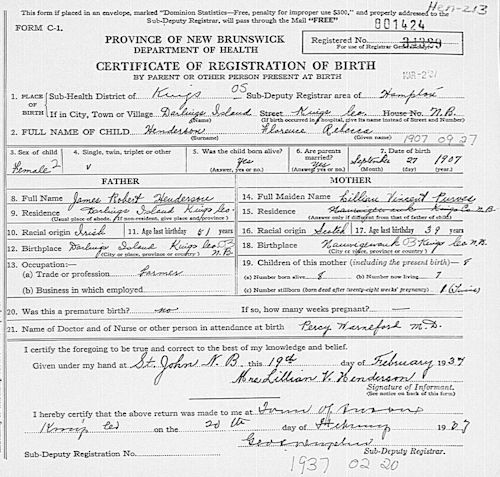 This form if placed in an envelope, marked "Dominion Statistics—Free, penalty for improper use $300," and properly addressed to the
Sub-Deputy Registrar, will pass through the Mail "FREE"
Hen-213
FORM C-1.
001424
PROVINCE OF NEW BRUNSWICK
DEPARTMENT OF HEALTH
Registered No.
For use of Registrar General
CERTIFICATE OF REGISTRATION OF BIRTH
BY PARENT OR OTHER PERSON PRESENT AT BIRTH
1. PLACE OF BIRTH
Sub-Health District of Kings 05 Sub-Deputy Registrar area of Hampton
If in City, Town or Village Darlings Island Street Kings Co. House No. N.B.
(If birth occurred in hospital, give its name instead of Street and Number)
2. FULL NAME OF CHILD Henderson Florence Rebecca
(Surname) (Given name) 1907 09 27
3. Sex of child Female 2
4. Single, twin, triplet or other
5. Was the child born alive? Yes
(Answer yes or no)
6. Are parents married? Yes
(Answer yes or no)
7. Date of birth September 27 1907
(Month) (Day) (Year)
FATHER
MOTHER
8. Full Name James Robert Henderson
14. Full Maiden Name Lillian Vincent Purves
9. Residence Darlings Island Kings Co.
(Usual place of abode. If non-resident, give city or place, and province)
15. Residence Nauwigewauk Kings Co N.B.
(Answer only if different from that of father of child)
10. Racial origin Irish 11. Age last birthday 51 years
16. Racial origin Scotch 17. Age last birthday 39 years
12. Birthplace Darlings Island Kings Co N.B.
(City or place, province or country)
18. Birthplace Nauwigewauk Kings Co N.B.
(City or place, province or country)
13. Occupation:—
(a) Trade or profession Farmer
(b) Business in which employed
19. Children of this mother (including the present birth)— 8
(a) Number born alive 8 (b) Number now living 7
(c) Number stillborn (born dead after twenty-eight weeks' pregnancy) 1 (Twins)
20. Was this a premature birth? no If so, how many weeks pregnant? —
21. Name of Doctor and of Nurse or other person in attendance at birth Percy Warneford M.D.
I certify the foregoing to be true and correct to the best of my knowledge and belief.
Given under my hand at St. John N.B. this 19th day of February 1937
Mrs Lillian V. Henderson
Signature of Informant.
(See notice on back of this form)
I hereby certify that the above return was made to me at Town of
Kings Co on the 20th day of February 1937
Sub-Deputy Registration No. Sub-Deputy Registrar.
1937 02 20